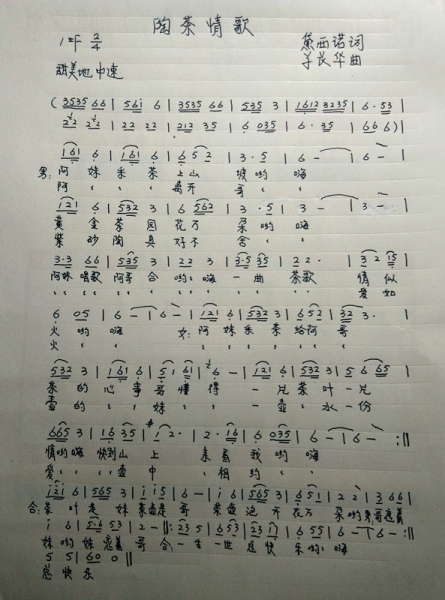 陶茶情歌
1=F 2/4 黛西诺词
甜美地 中速 羊长华曲
( 3535 66 | 561 6 | 3535 66 | 535 3 | 1612 3235 | 6·53 |
22 22 | 22 22 | 212 35 | 6 035 | 6·35 | 666 )|
161 6 | 161 6 | 6 5 2 | 3·5 | 6 — | 6 — |
男:阿妹采茶上山坡哟嗨
阿 离开哥
121 6 | 532 3 | 6 562 | 3·5 | 3 — | 3 — |
黄金茶园花万朵哟嗨
紫砂陶具好不舍
3·3 66 | 535 3 | 22 3 | 3·5 35 | 22· | 32 15 |
阿妹唱歌阿哥合哟嗨一曲茶歌 情似
爱如
6 035 | 6 — | 6 — | 121 6 | 532 3 | 652 | 32 3· |
火哟嗨 女:阿妹采茶给阿哥
火
532 3 | 161 6 | 5·161 | 6 — | 121 6 | 532 3 | 5 665 |
茶的心事哥懂得 一片茶叶一片
壶的 妹 一壶水一份
665 3 | 16 35 | 12· | 2·16 | 6 035 | 6 — | 6 — :||
情哟嗨 快到山上来看我哟嗨
爱 壶中 相约
1121 6 | 565 3 | i i 5 | 6 — | i 6 | 565 3 | 651 | 22 | 3 66 |
合:茶叶是妹茶壶是哥 茶壶泡开花万朵哟
i 6 | 5·6 53 | 2 — ||: 23 5 | 6 53 | 23 | 6 55 | 6 — | 6 — :||
妹哟妹恋着哥 合:一生一世总快乐哟嗨
5 5 | 60 0 ||
总快乐